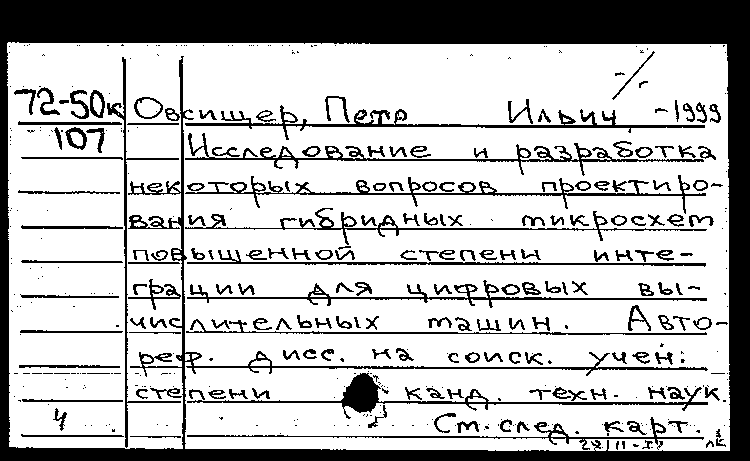 72-50к Овсищер, Петр Ильич -1999
107 Исследование и разработка
некоторых вопросов проектиро-
вания гибридных микросхем
повышенной степени инте-
грации для цифровых вы-
числительных машин. Авто-
реф. дисс. на соиск. учен.
степени канд. техн. наук.
4 См. след. карт.